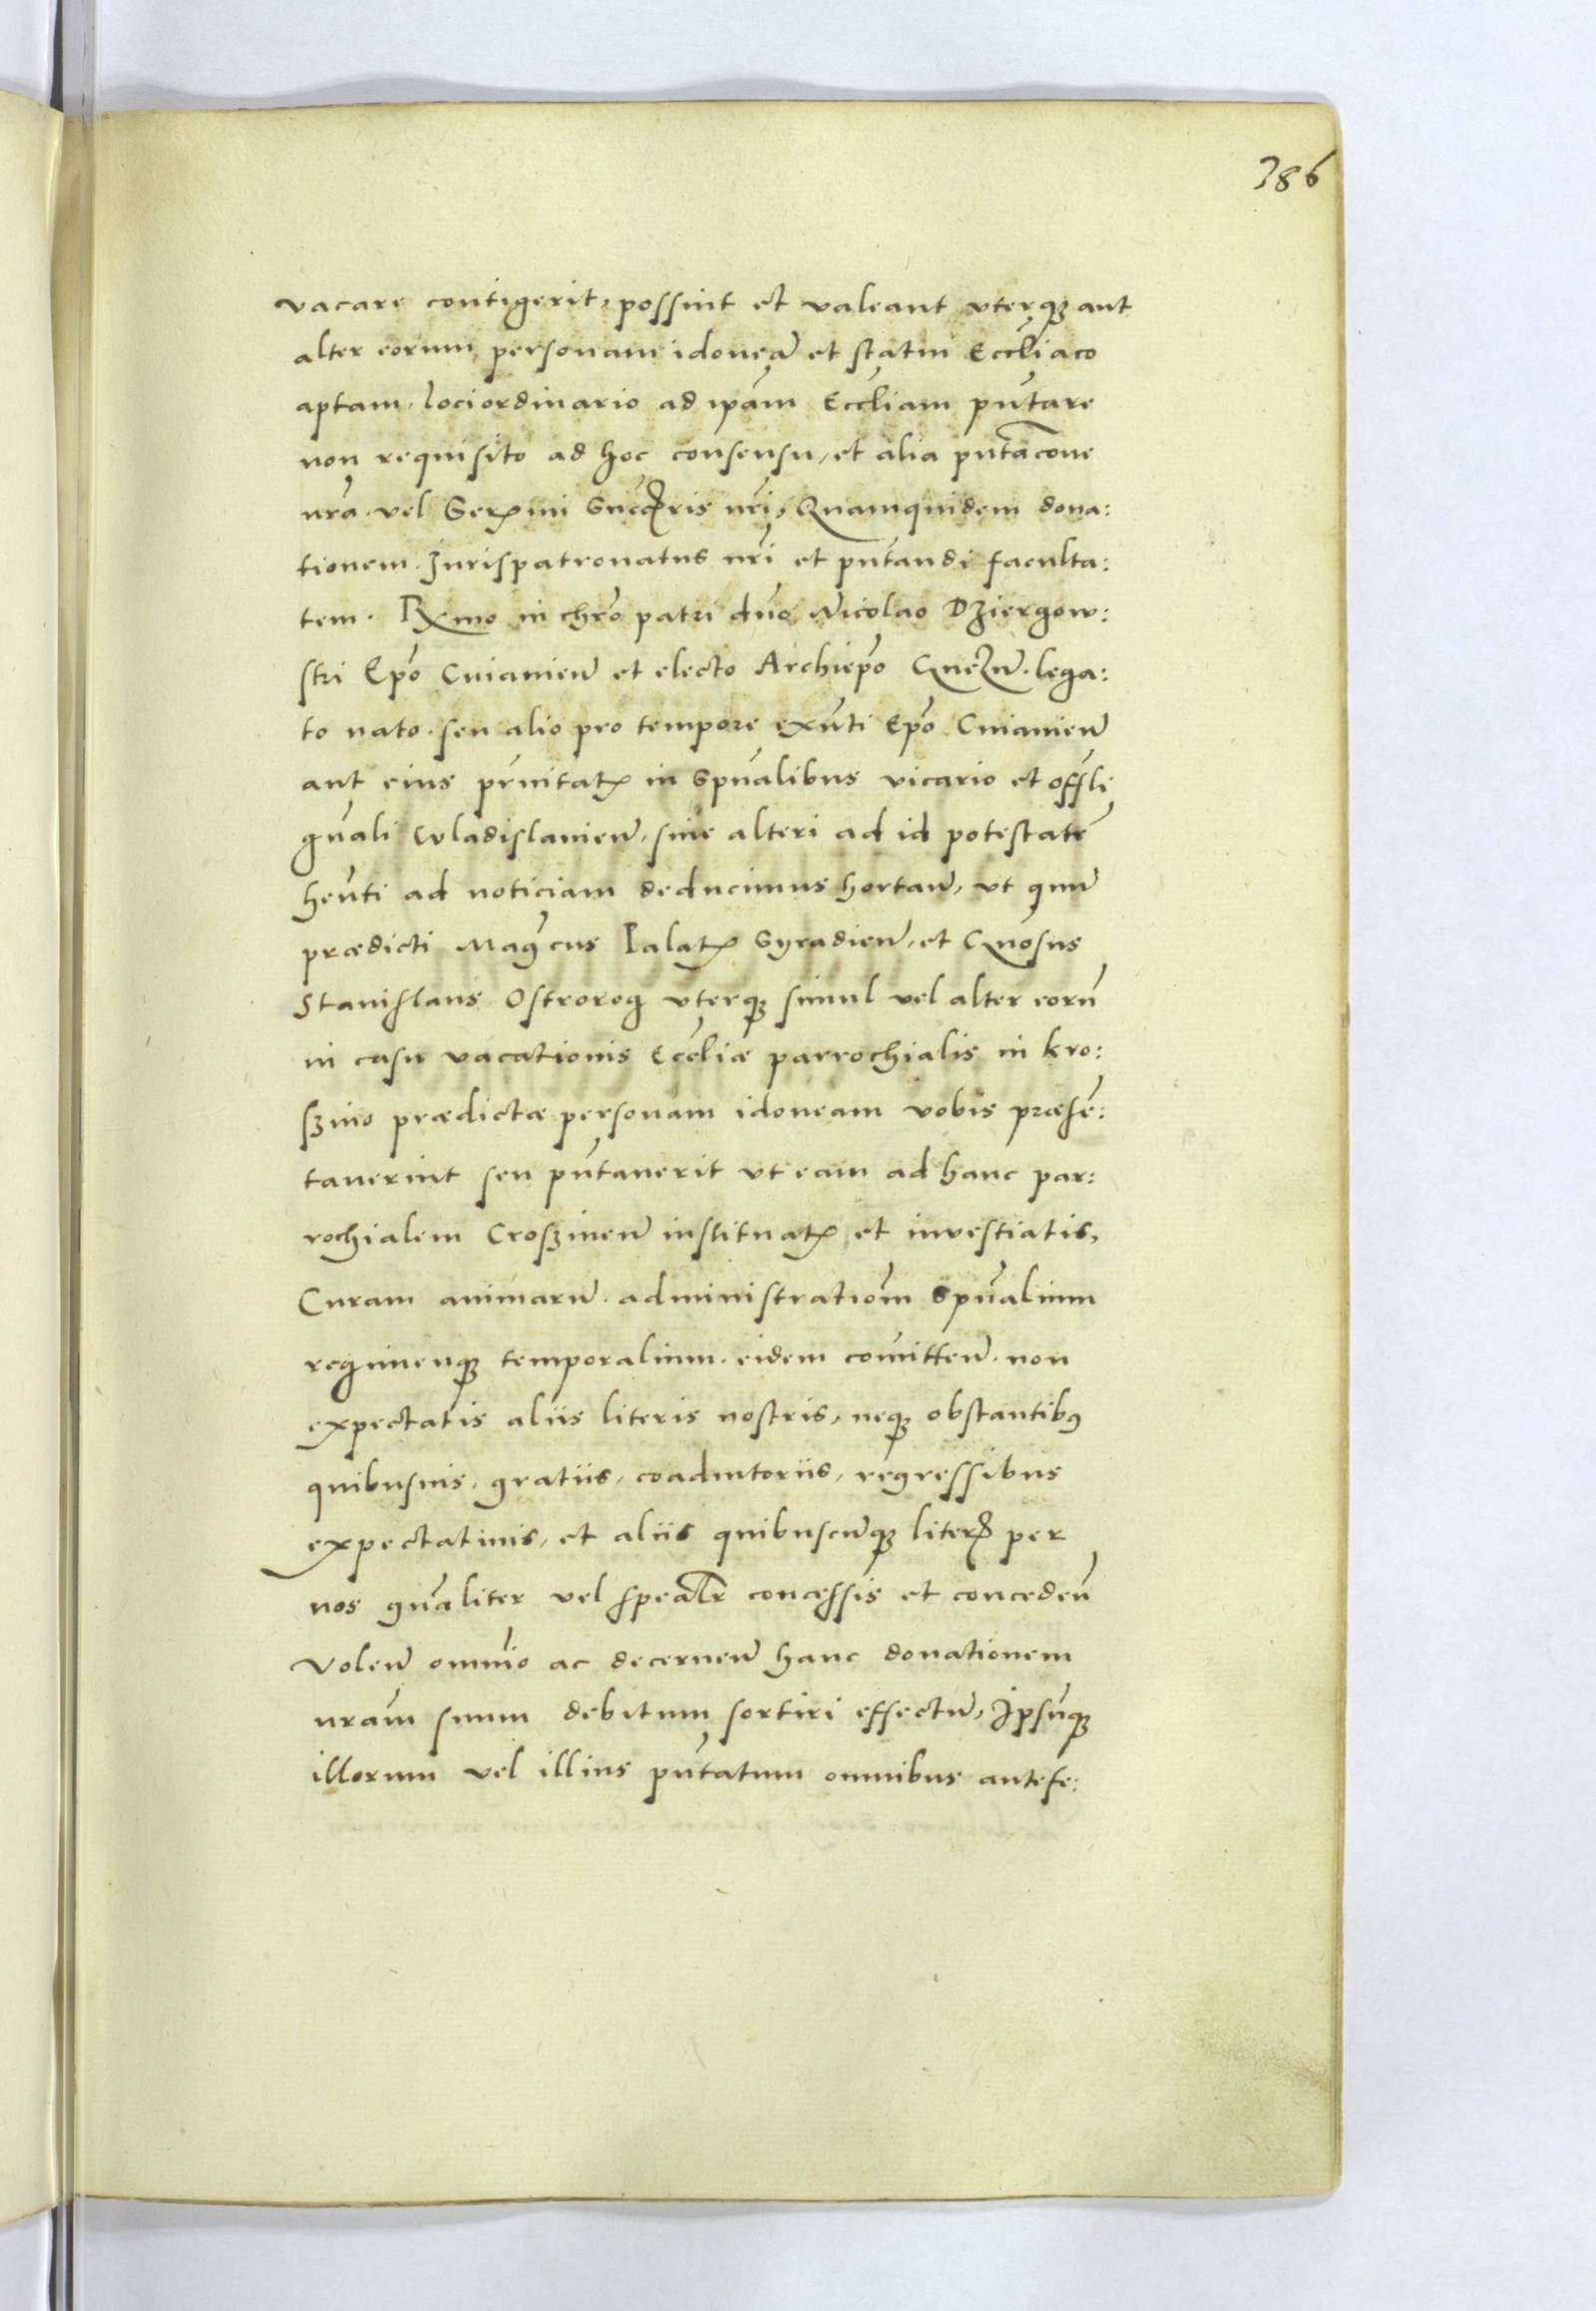 386
vacare contigerit, possint et valeant vterq₃ aut
alter eorum personam idoneā et statui Eccl̄iaco
aptam, loci ordinario ad ip̄am Eccl̄iam pn̄tare
non requisito ad hoc consensu, et alia pn̄tac̄one
nr̄a. vel Serᵐⁱ succ̄ris nr̄i, Quamquidem dona:
tionem. Jurispatronatus nr̄i et pn̄tandi faculta:
tem. Rmo in chr̄o patri dn̄o Nicolao Dziergow:
ski Ep̄o Cuiauieñ et electo Archiep̄o Gnezneñ. lega:
to nato. seu alio pro tempore exn̄ti Ep̄o Cuiauieñ
aut eius pr̄nitatꝭ in Spūalibus vicario et offl̄i
gn̄ali Wladislauieñ, siue alteri ad id potestatē
hen̄ti ad noticiam deducimus hortañ, vt quū
prædicti Mag̅cus Palatꝭ Syradieñ, et Gn̄osus
Stanislaus Ostrorog vterq₃ simul vel alter eorū
in casu vacationis Eccl̄iæ parrochialis in Kro:
szino prædictæ personam idoneam vobis præsē:
tauerint seu pn̄tauerit vt eam ad hanc par:
rochialem Croszineñ instituatꝭ et inuestiatis,
Curam animarū. administratiōm Spūalium
regimenq₃ temporalium. eidem com̄itteñ. non
expectatis aliis literis nostris, neq₃ obstantibꝰ
quibusuis, gratiis, coadiutoriis, regressibus
expectatiuis, et aliis quibuscūq₃ literꝭ per
nos gn̄aliter vel speālr concessis et concedeñ
Voleñ omnio ac decerneñ hanc donationem
nr̄am suum debitum sortiri effectū, Ipsūq₃
illorum vel illius pn̄tatum omnibus antefe: